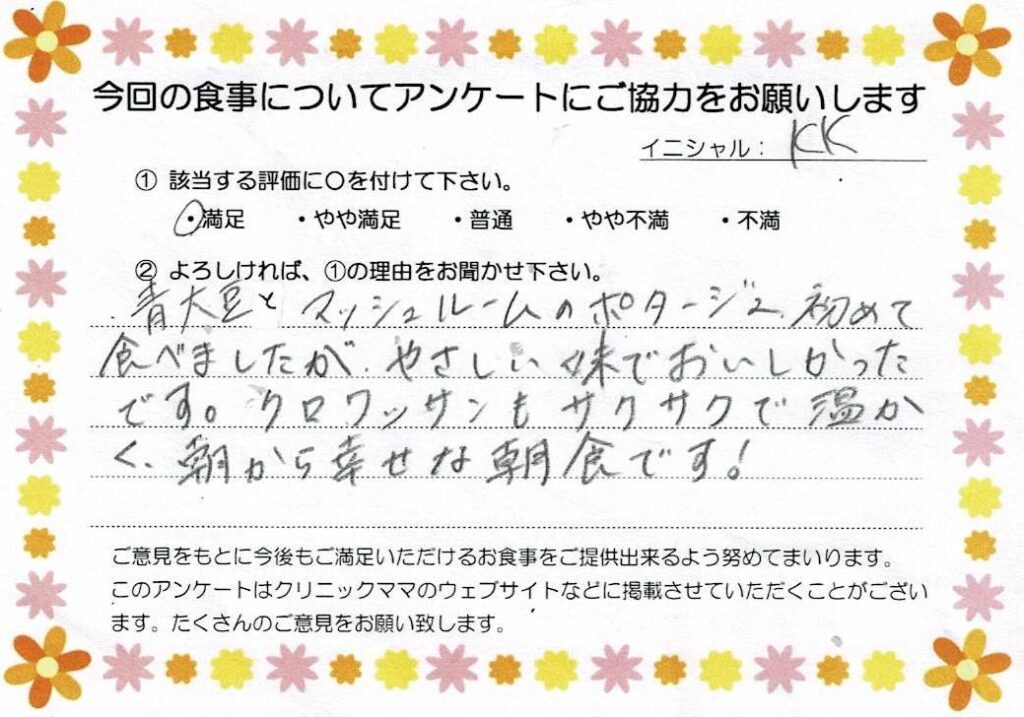 今回の食事についてアンケートにご協力をお願いします
イニシャル： KK
① 該当する評価に〇を付けて下さい。
・満足 ・やや満足 ・普通 ・やや不満 ・不満
② よろしければ、①の理由をお聞かせ下さい。
青大豆とマッシュルームのポタージュ、初めて
食べましたが、やさしい味でおいしかった
です。クロワッサンもサクサクで温か
く、朝から幸せな朝食です！
ご意見をもとに今後もご満足いただけるお食事をご提供出来るよう努めてまいります。
このアンケートはクリニックママのウェブサイトなどに掲載させていただくことがござい
ます。たくさんのご意見をお願い致します。